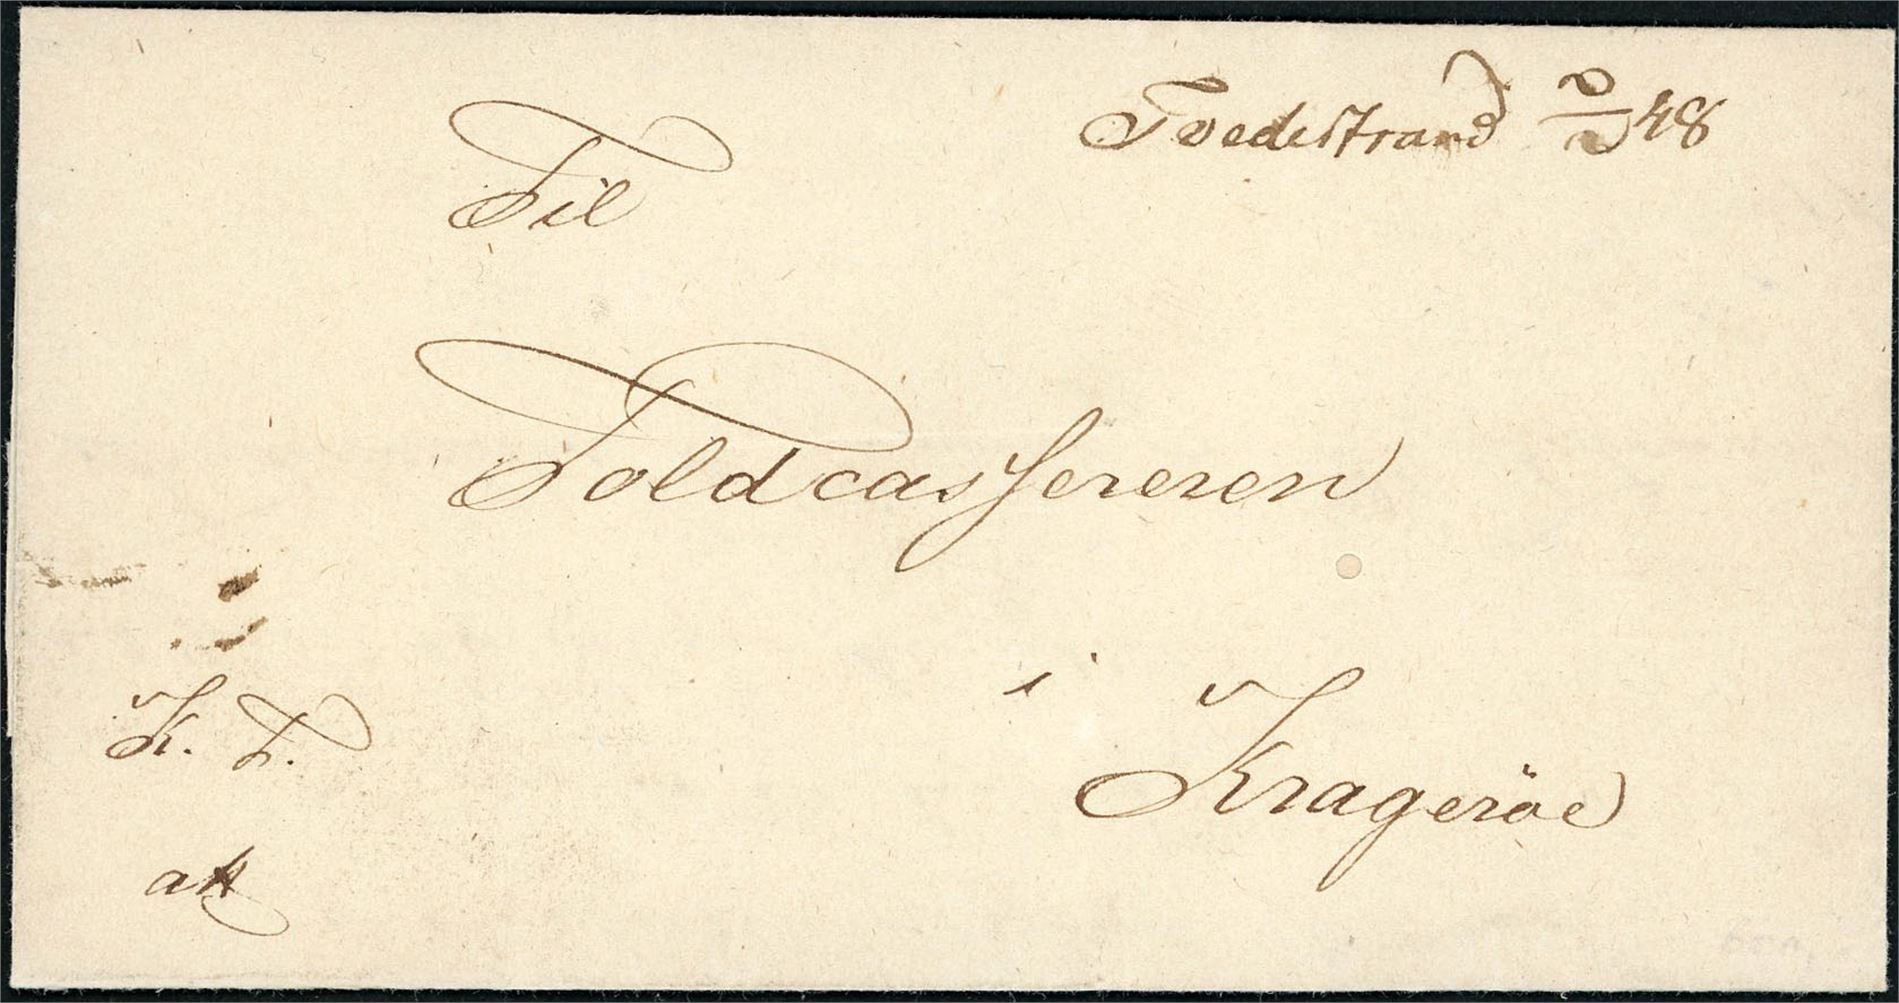 Tvedestrand 2/2 48
Til
Toldcassereren
i
Krageröe
K. T.